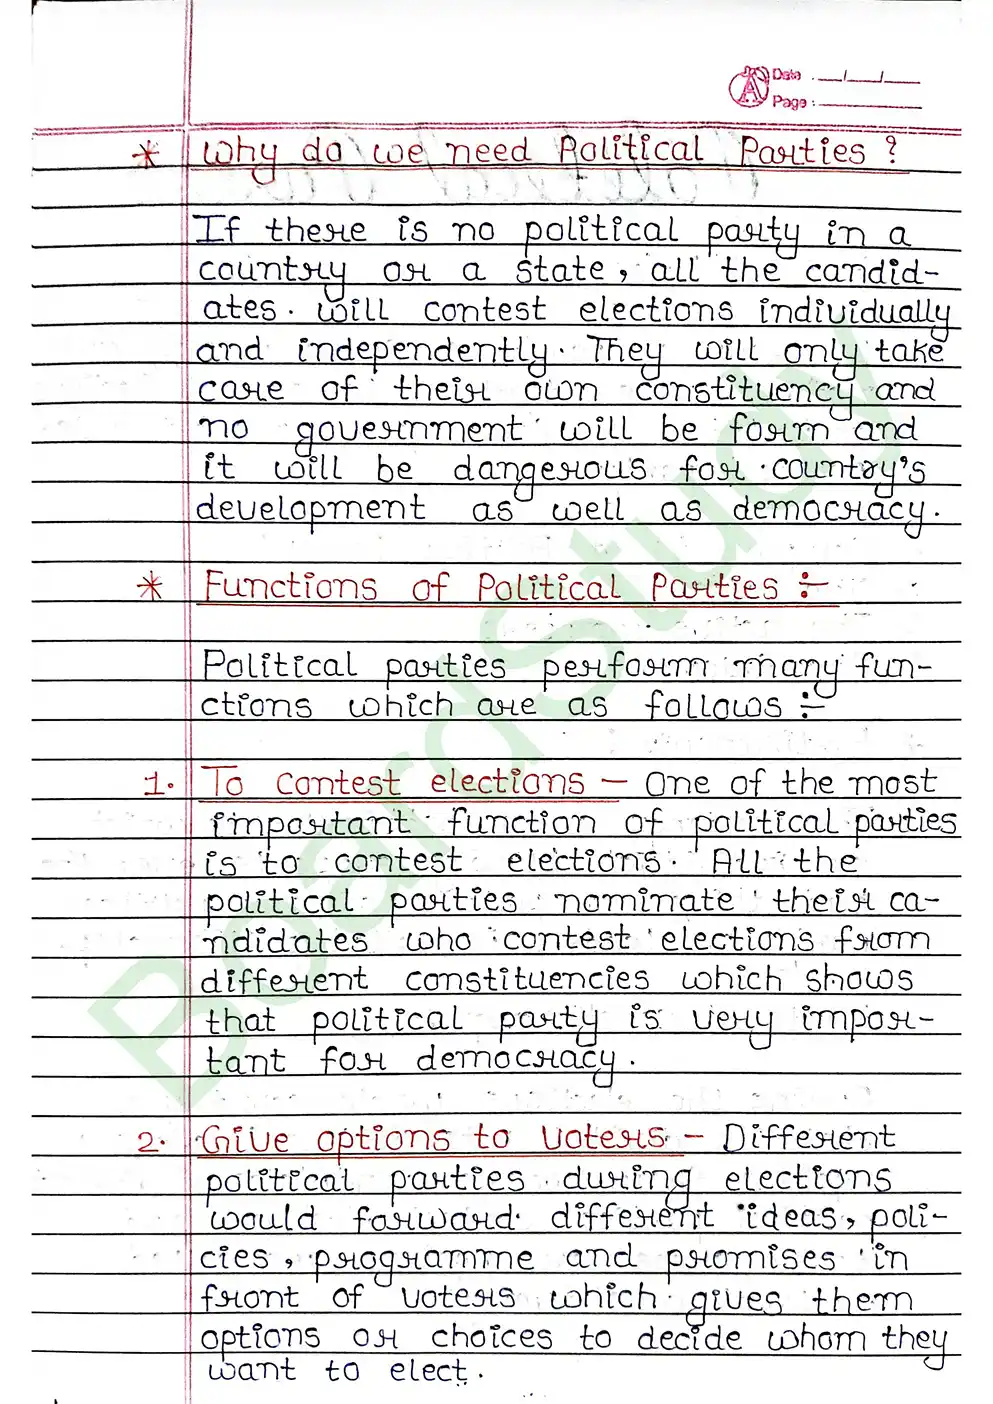 Date : __/__/__
Page :
* Why do we need Political Parties ?
If there is no political party in a
country or a state, all the candid-
ates. will contest elections individually
and independently. They will only take
care of their own constituency and
no government will be form and
it will be dangerous for country's
development as well as democracy.
* Functions of Political Parties :-
Political parties perform many fun-
ctions which are as follows :-
1. To Contest elections - One of the most
important function of political parties
is to contest elections. All the
political parties nominate their ca-
ndidates who contest elections from
different constituencies which shows
that political party is very impor-
tant for democracy.
2. Give options to voters - Different
political parties during elections
would forward different ideas, poli-
cies, programme and promises in
front of voters which gives them
options or choices to decide whom they
want to elect.
BoardStudy